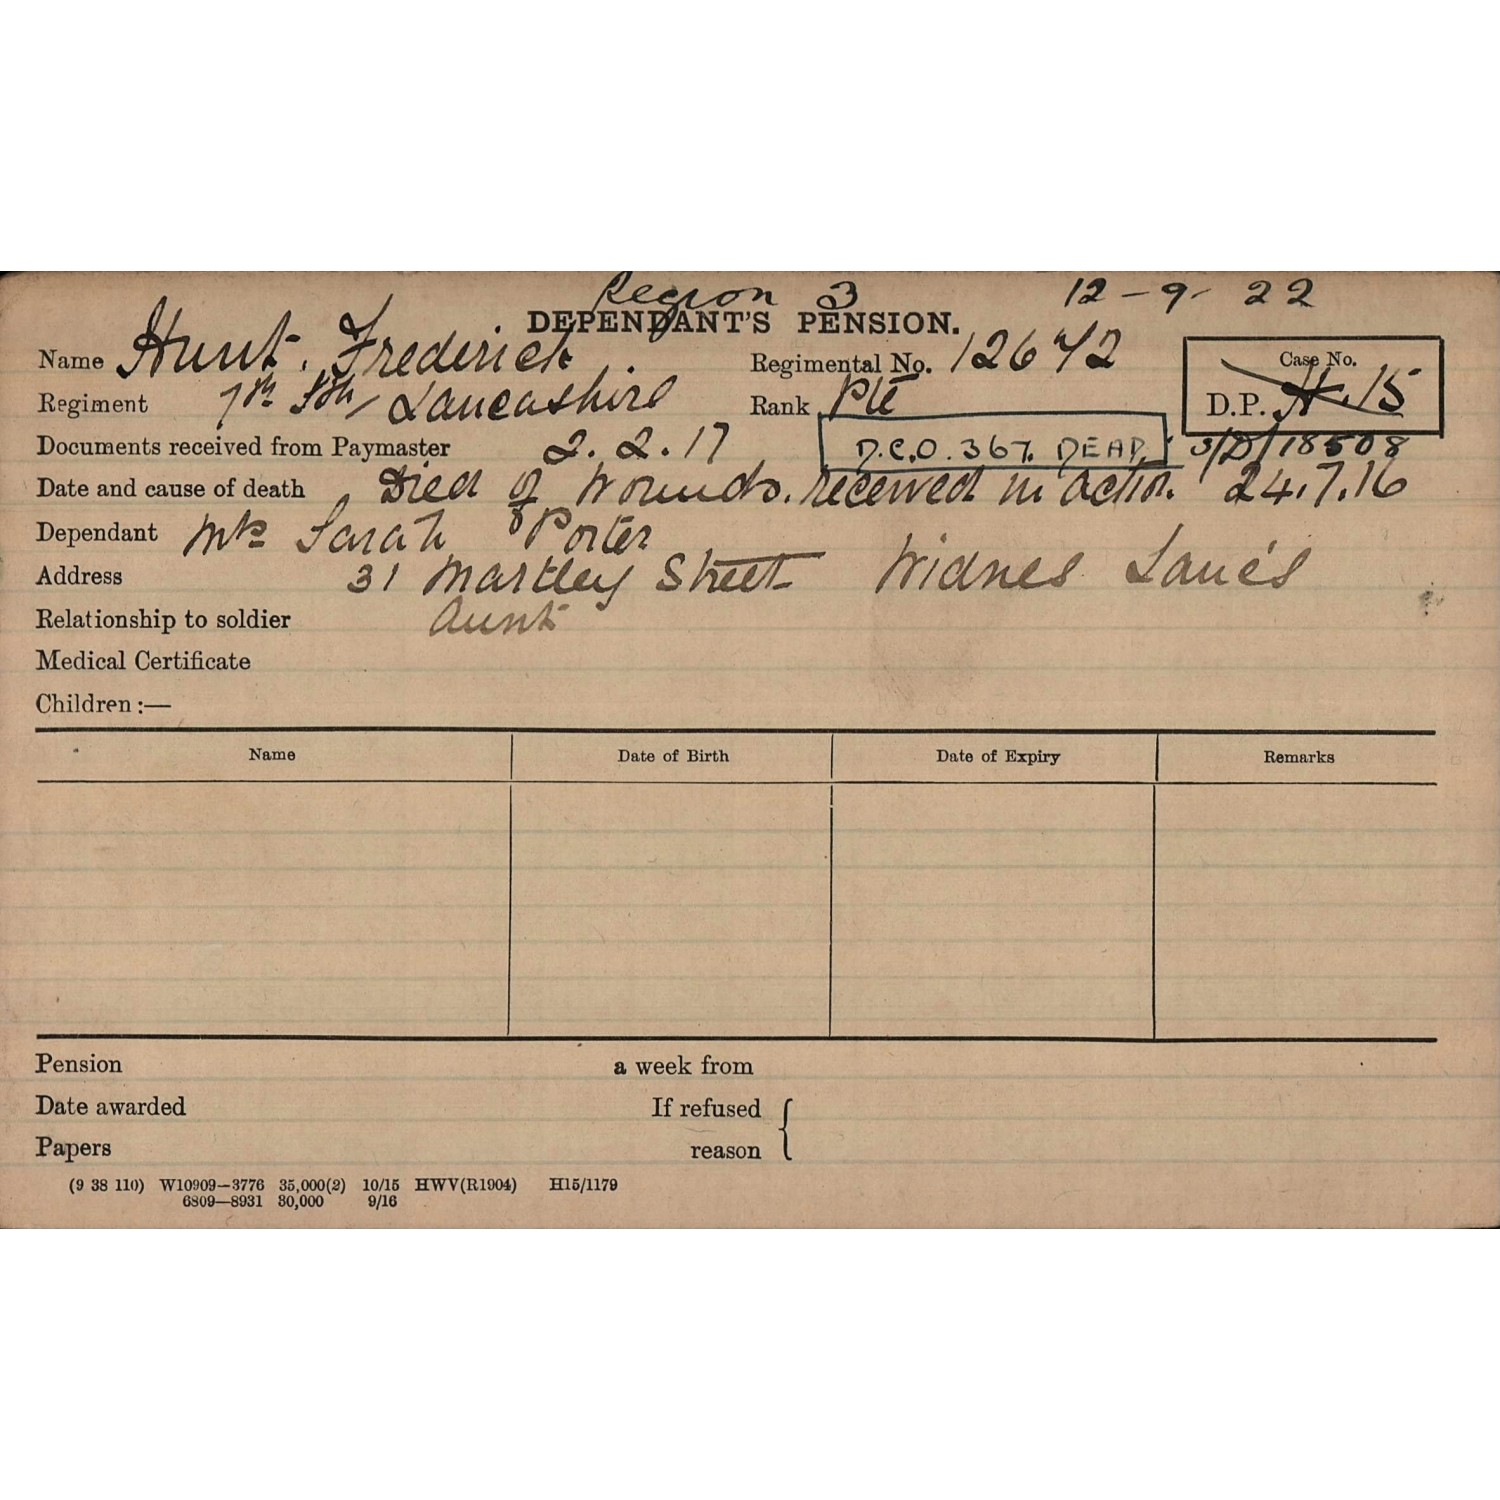 Region 3 12-9-22
DEPENDANT'S PENSION.
Name Hunt. Frederick Regimental No. 12642 Case No.
Regiment 7th Sth Lancashire Rank Pte D.P. H.15
Documents received from Paymaster 2.2.17 D.C.O. 367. DEAD. 3/D/18508
Date and cause of death Died of Wounds. received in action. 24.7.16
Dependant Mrs Sarah Porter
Address 31 Martley Street Widnes Lancs
Relationship to soldier Aunt
Medical Certificate
Children :—
Name Date of Birth Date of Expiry Remarks
Pension a week from
Date awarded If refused
Papers reason
(9 38 110) W10909—3776 35,000(2) 10/15 HWV(R1904) H15/1179
6809—8931 30,000 9/16